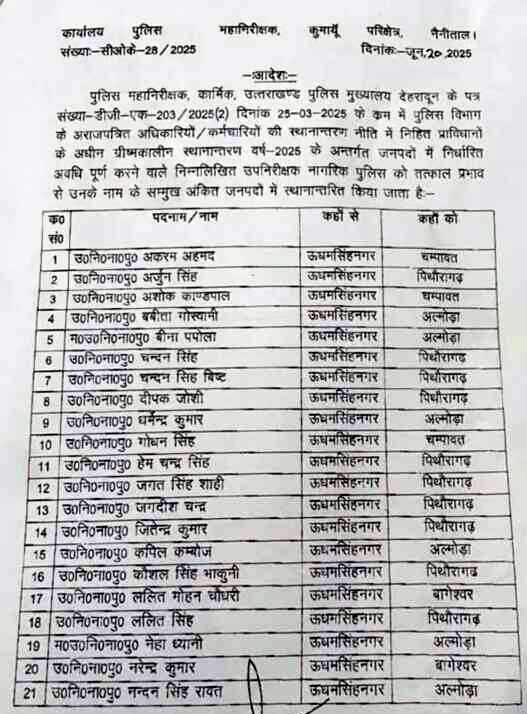 कार्यालय पुलिस महानिरीक्षक, कुमायूँ परिक्षेत्र, नैनीताल।
संख्याः-सीओके-28/2025 दिनांकः-जून,20,2025
-:आदेशः-
पुलिस महानिरीक्षक, कार्मिक, उत्तराखण्ड पुलिस मुख्यालय देहरादून के पत्र
संख्या-डीजी-एक-203/2025(2) दिनांक 25-03-2025 के कम में पुलिस विभाग
के अराजपत्रित अधिकारियों/कर्मचारियों की स्थानान्तरण नीति में निहित प्राविधानों
के अधीन ग्रीष्मकालीन स्थानान्तरण वर्ष-2025 के अन्तर्गत जनपदों में निर्धारित
अवधि पूर्ण करने वाले निम्नलिखित उपनिरीक्षक नागरिक पुलिस को तत्काल प्रभाव
से उनके नाम के सम्मुख अंकित जनपदों में स्थानान्तरित किया जाता हैः-
क0 सं0 पदनाम/नाम कहाँ से कहाँ को
1 उ0नि0ना0पु0 अकरम अहमद ऊधमसिंहनगर चम्पावत
2 उ0नि0ना0पु0 अर्जुन सिंह ऊधमसिंहनगर पिथौरागढ़
3 उ0नि0ना0पु0 अशोक काण्डपाल ऊधमसिंहनगर चम्पावत
4 उ0नि0ना0पु0 बबीता गोस्वामी ऊधमसिंहनगर अल्मोड़ा
5 म0उ0नि0ना0पु0 बीना पपोला ऊधमसिंहनगर अल्मोड़ा
6 उ0नि0ना0पु0 चन्दन सिंह ऊधमसिंहनगर पिथौरागढ़
7 उ0नि0ना0पु0 चन्दन सिंह बिष्ट ऊधमसिंहनगर पिथौरागढ़
8 उ0नि0ना0पु0 दीपक जोशी ऊधमसिंहनगर पिथौरागढ़
9 उ0नि0ना0पु0 धर्मेन्द्र कुमार ऊधमसिंहनगर अल्मोड़ा
10 उ0नि0ना0पु0 गोधन सिंह ऊधमसिंहनगर चम्पावत
11 उ0नि0ना0पु0 हेम चन्द्र सिंह ऊधमसिंहनगर पिथौरागढ़
12 उ0नि0ना0पु0 जगत सिंह शाही ऊधमसिंहनगर पिथौरागढ़
13 उ0नि0ना0पु0 जगदीश चन्द्र ऊधमसिंहनगर पिथौरागढ़
14 उ0नि0ना0पु0 जितेन्द्र कुमार ऊधमसिंहनगर पिथौरागढ़
15 उ0नि0ना0पु0 कपिल कम्बोज ऊधमसिंहनगर अल्मोड़ा
16 उ0नि0ना0पु0 कौशल सिंह भाकुनी ऊधमसिंहनगर पिथौरागढ़
17 उ0नि0ना0पु0 ललित मोहन चौधरी ऊधमसिंहनगर बागेश्वर
18 उ0नि0ना0पु0 ललित सिंह ऊधमसिंहनगर पिथौरागढ़
19 म0उ0नि0ना0पु0 नेहा ध्यानी ऊधमसिंहनगर अल्मोड़ा
20 उ0नि0ना0पु0 नरेन्द्र कुमार ऊधमसिंहनगर बागेश्वर
21 उ0नि0ना0पु0 नन्दन सिंह रावत ऊधमसिंहनगर अल्मोड़ा